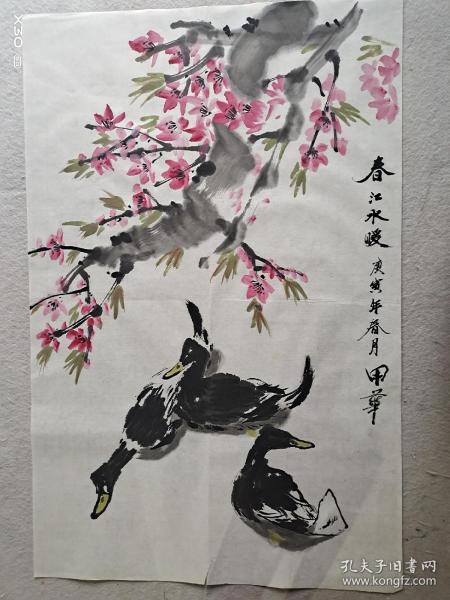 春江水暖
庚寅年春月
甲華
X30
孔夫子旧书网
www.kongfz.com